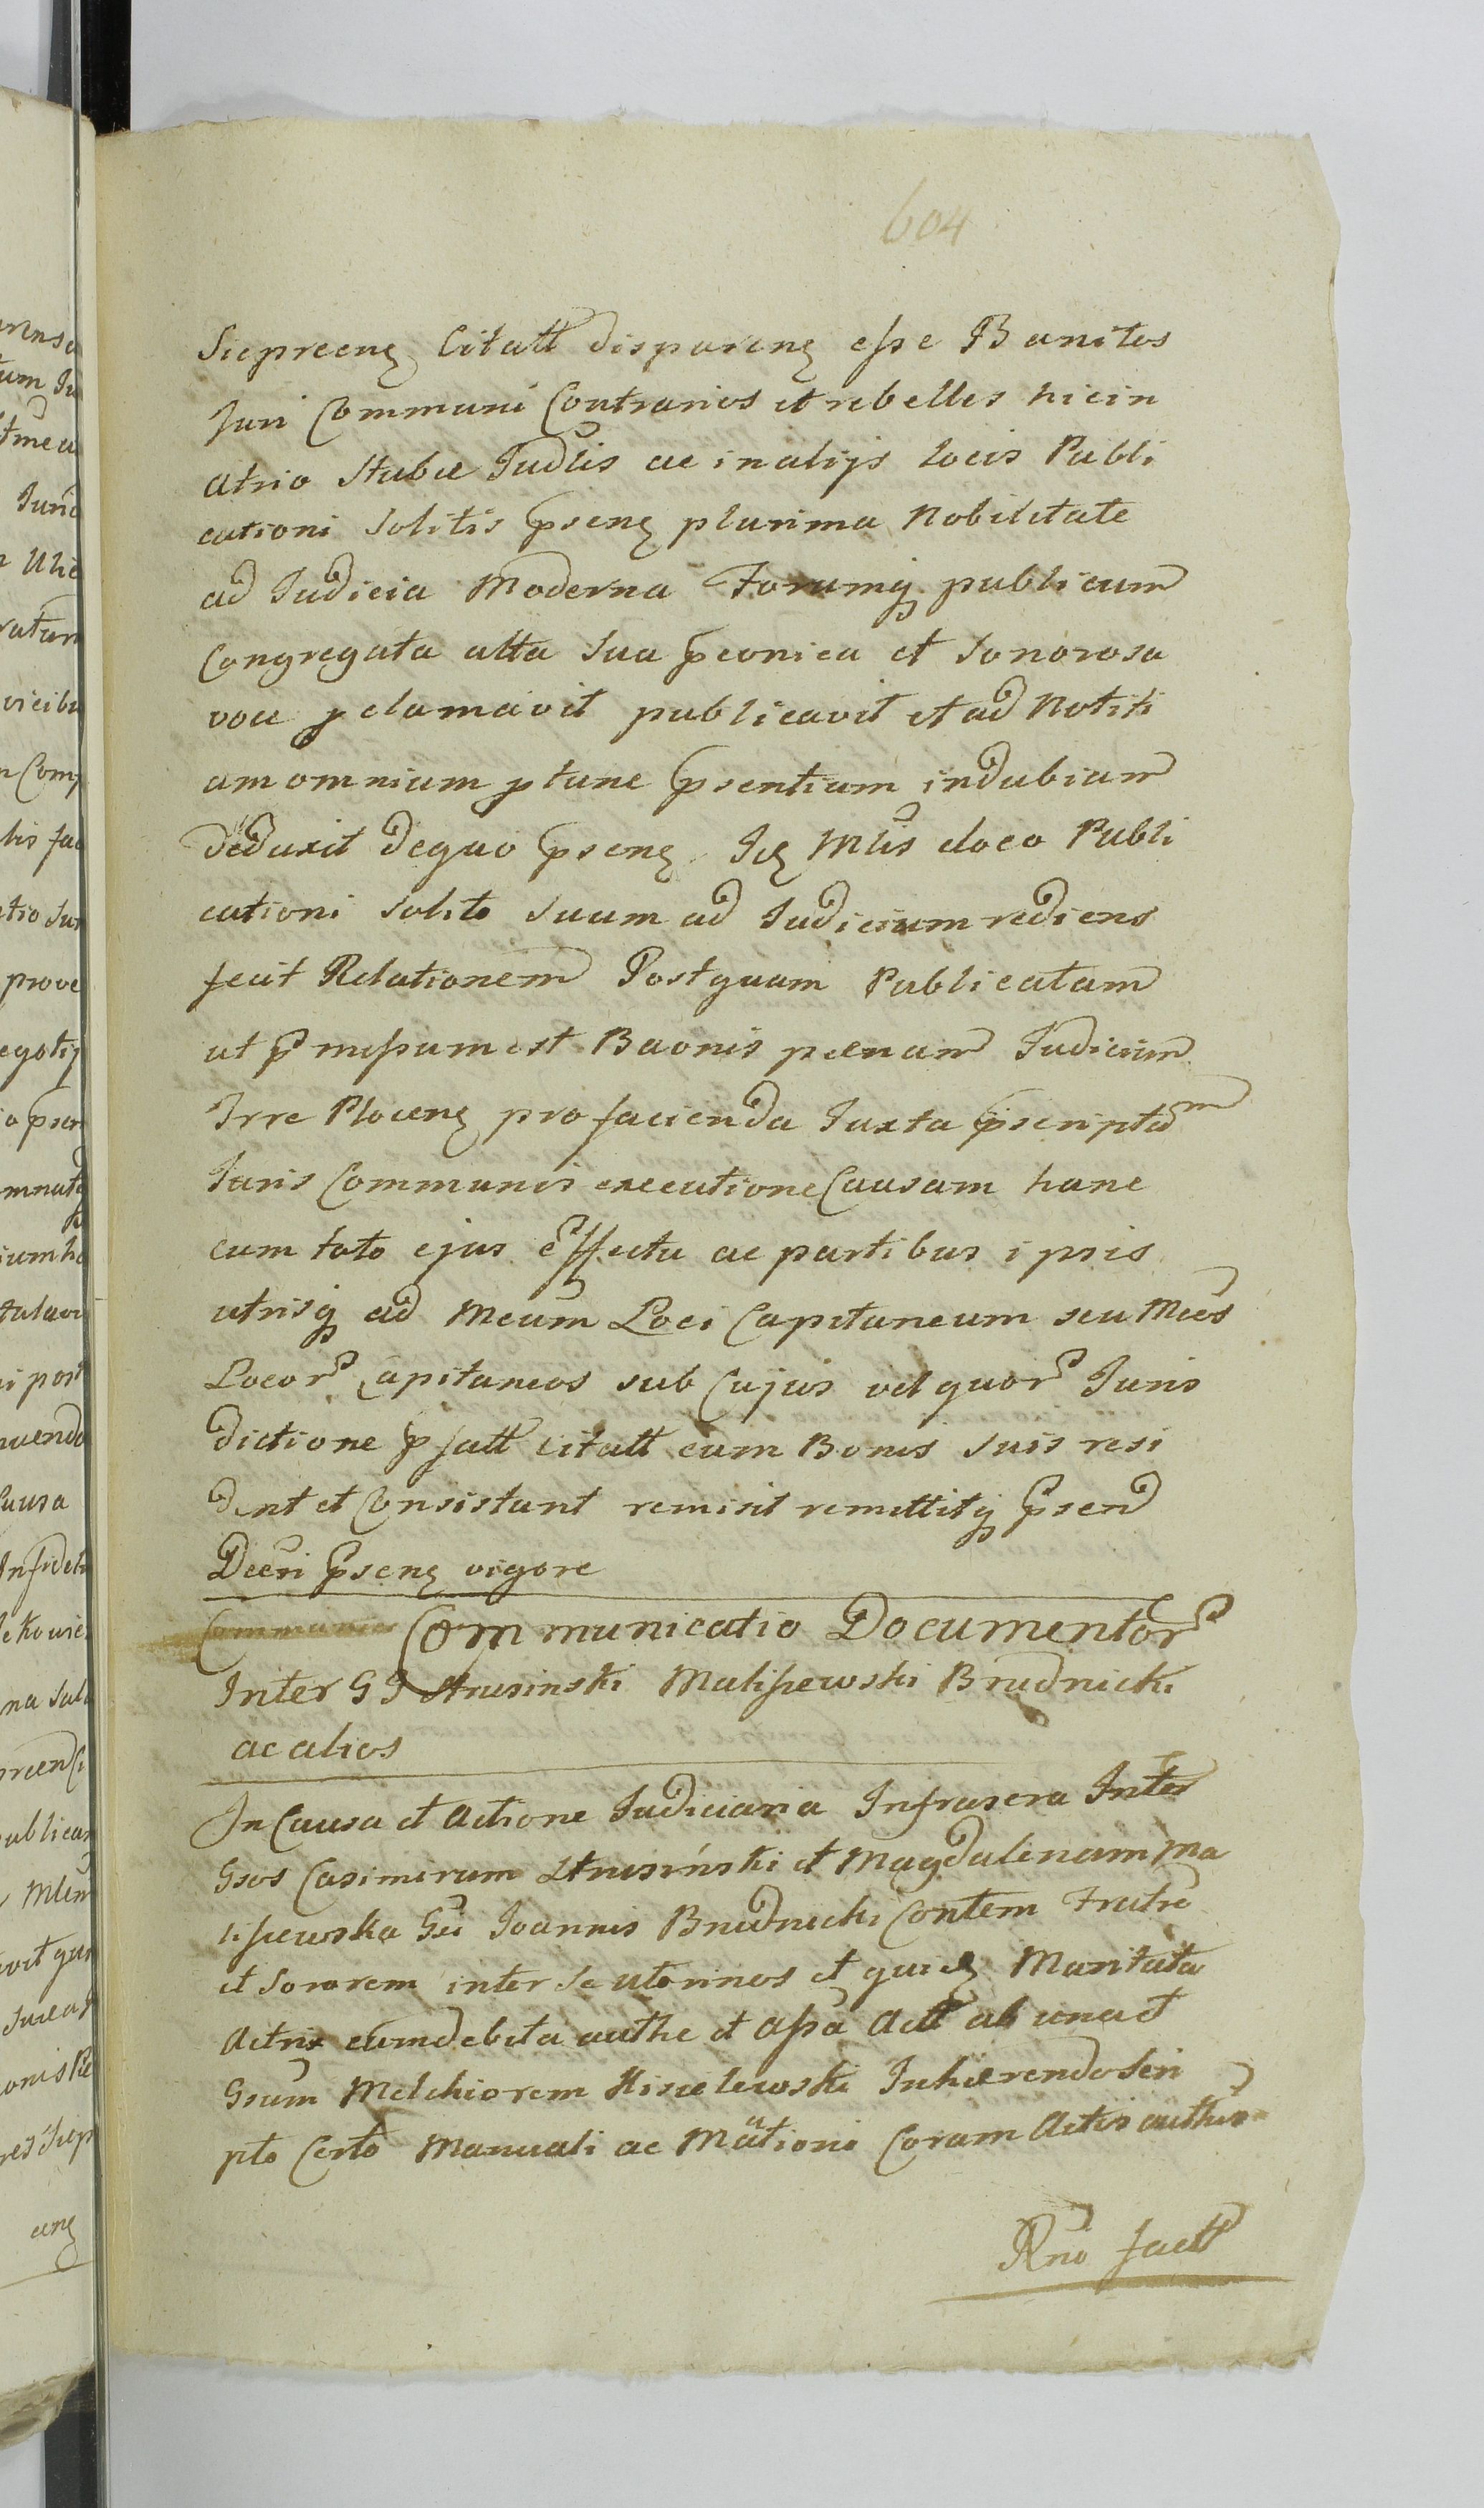 604
Supreeng Citatt dispareng esse Banitos
Juri Communi Contrarios et rebelles hicin
atrio Stubae Judlis ac inalijs locis Publi
cationi solitis pseng plurima Nobilitate
ad Judicia Moderna Forumq publicum
Congregata alta sua pconica et sonorosa
voce pclamavit publicavit et ad Notiti
am omnium ptunc psentium indubiam
deduxit dequo pseng Jg Mlis eloco Publi
cationi solito suum ad Judicium rediens
fecit Relationem Postquam Publicatam
ut pmissum est Baonis paenam Judicium
Trre Ploceng pro facienda Juxta pscriptum
Juris Communis executione Causam hanc
cum toto ejus effectu ac partibus ipsis
utrisq ad Meum Loci Capitaneum seu Meos
Locor Capitaneos sub Cujus vel quor Juris
dictione pfatt citatt cum Bonis suis resi
dent et Consistunt remisit remittitq psend
Decri pseng vigore
Communica Communicatio Documentor
Inter GG Strusinski Maliszewski Brudnicki
ac alios
In Causa et Actione Judiciaria Infrascra Inter
Gsos Casimirum Strusiński et Magdalenam Ma
liszewska Gsi Joannis Brudnicki Contem Fratre
et Sororem inter se uterinos et quidg Maritata
Actrix cumdebita authe et assa Act ab unaet
Gsum Melchiorem Kisielewski Inhaerendo Scri
pto Certo Manuali ac Mationi Coram Actis authen
Rno factt